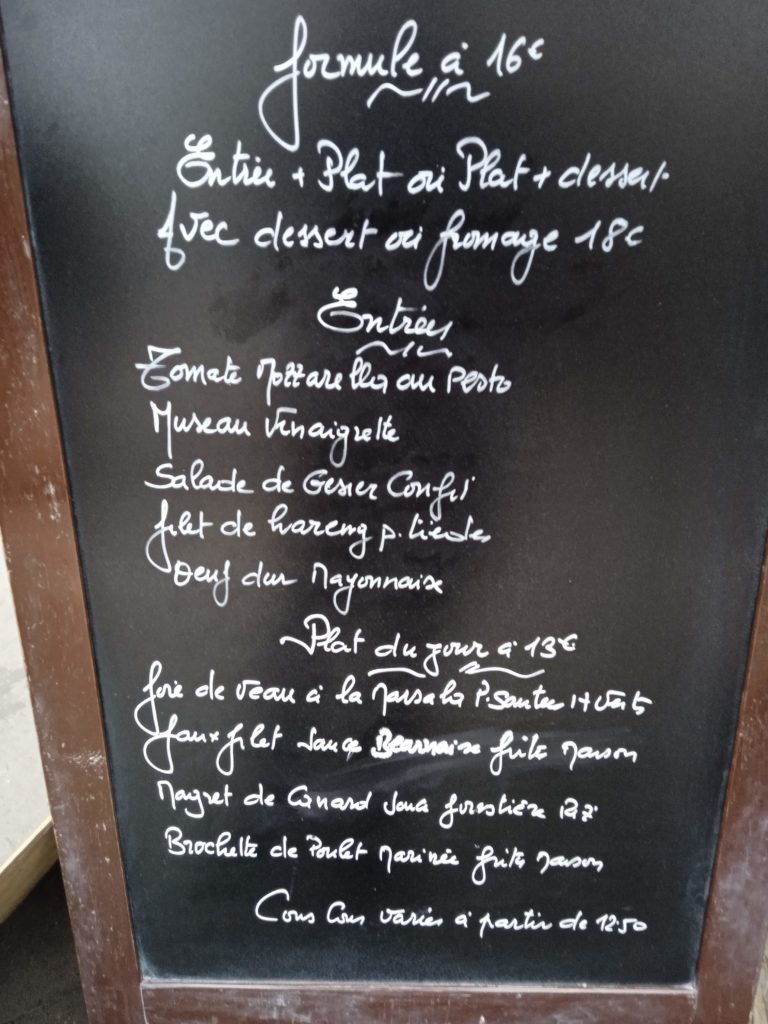 formule à 16€
Entrée + Plat ou Plat + dessert
Avec dessert ou fromage 18€
Entrées
Tomate Mozzarella au Pesto
Museau Vinaigrette
Salade de Gesier Confit
filet de hareng p. tiedes
Oeuf dur Mayonnaise
Plat du jour à 13€
foie de veau à la Marsala P. Sautee H Verts
faux filet Sauce Bearnaise frites Maison
Magret de Canard Sauce forestière Riz
Brochette de Poulet Marinée frites Maison
Cous Cous variés à partir de 12.50